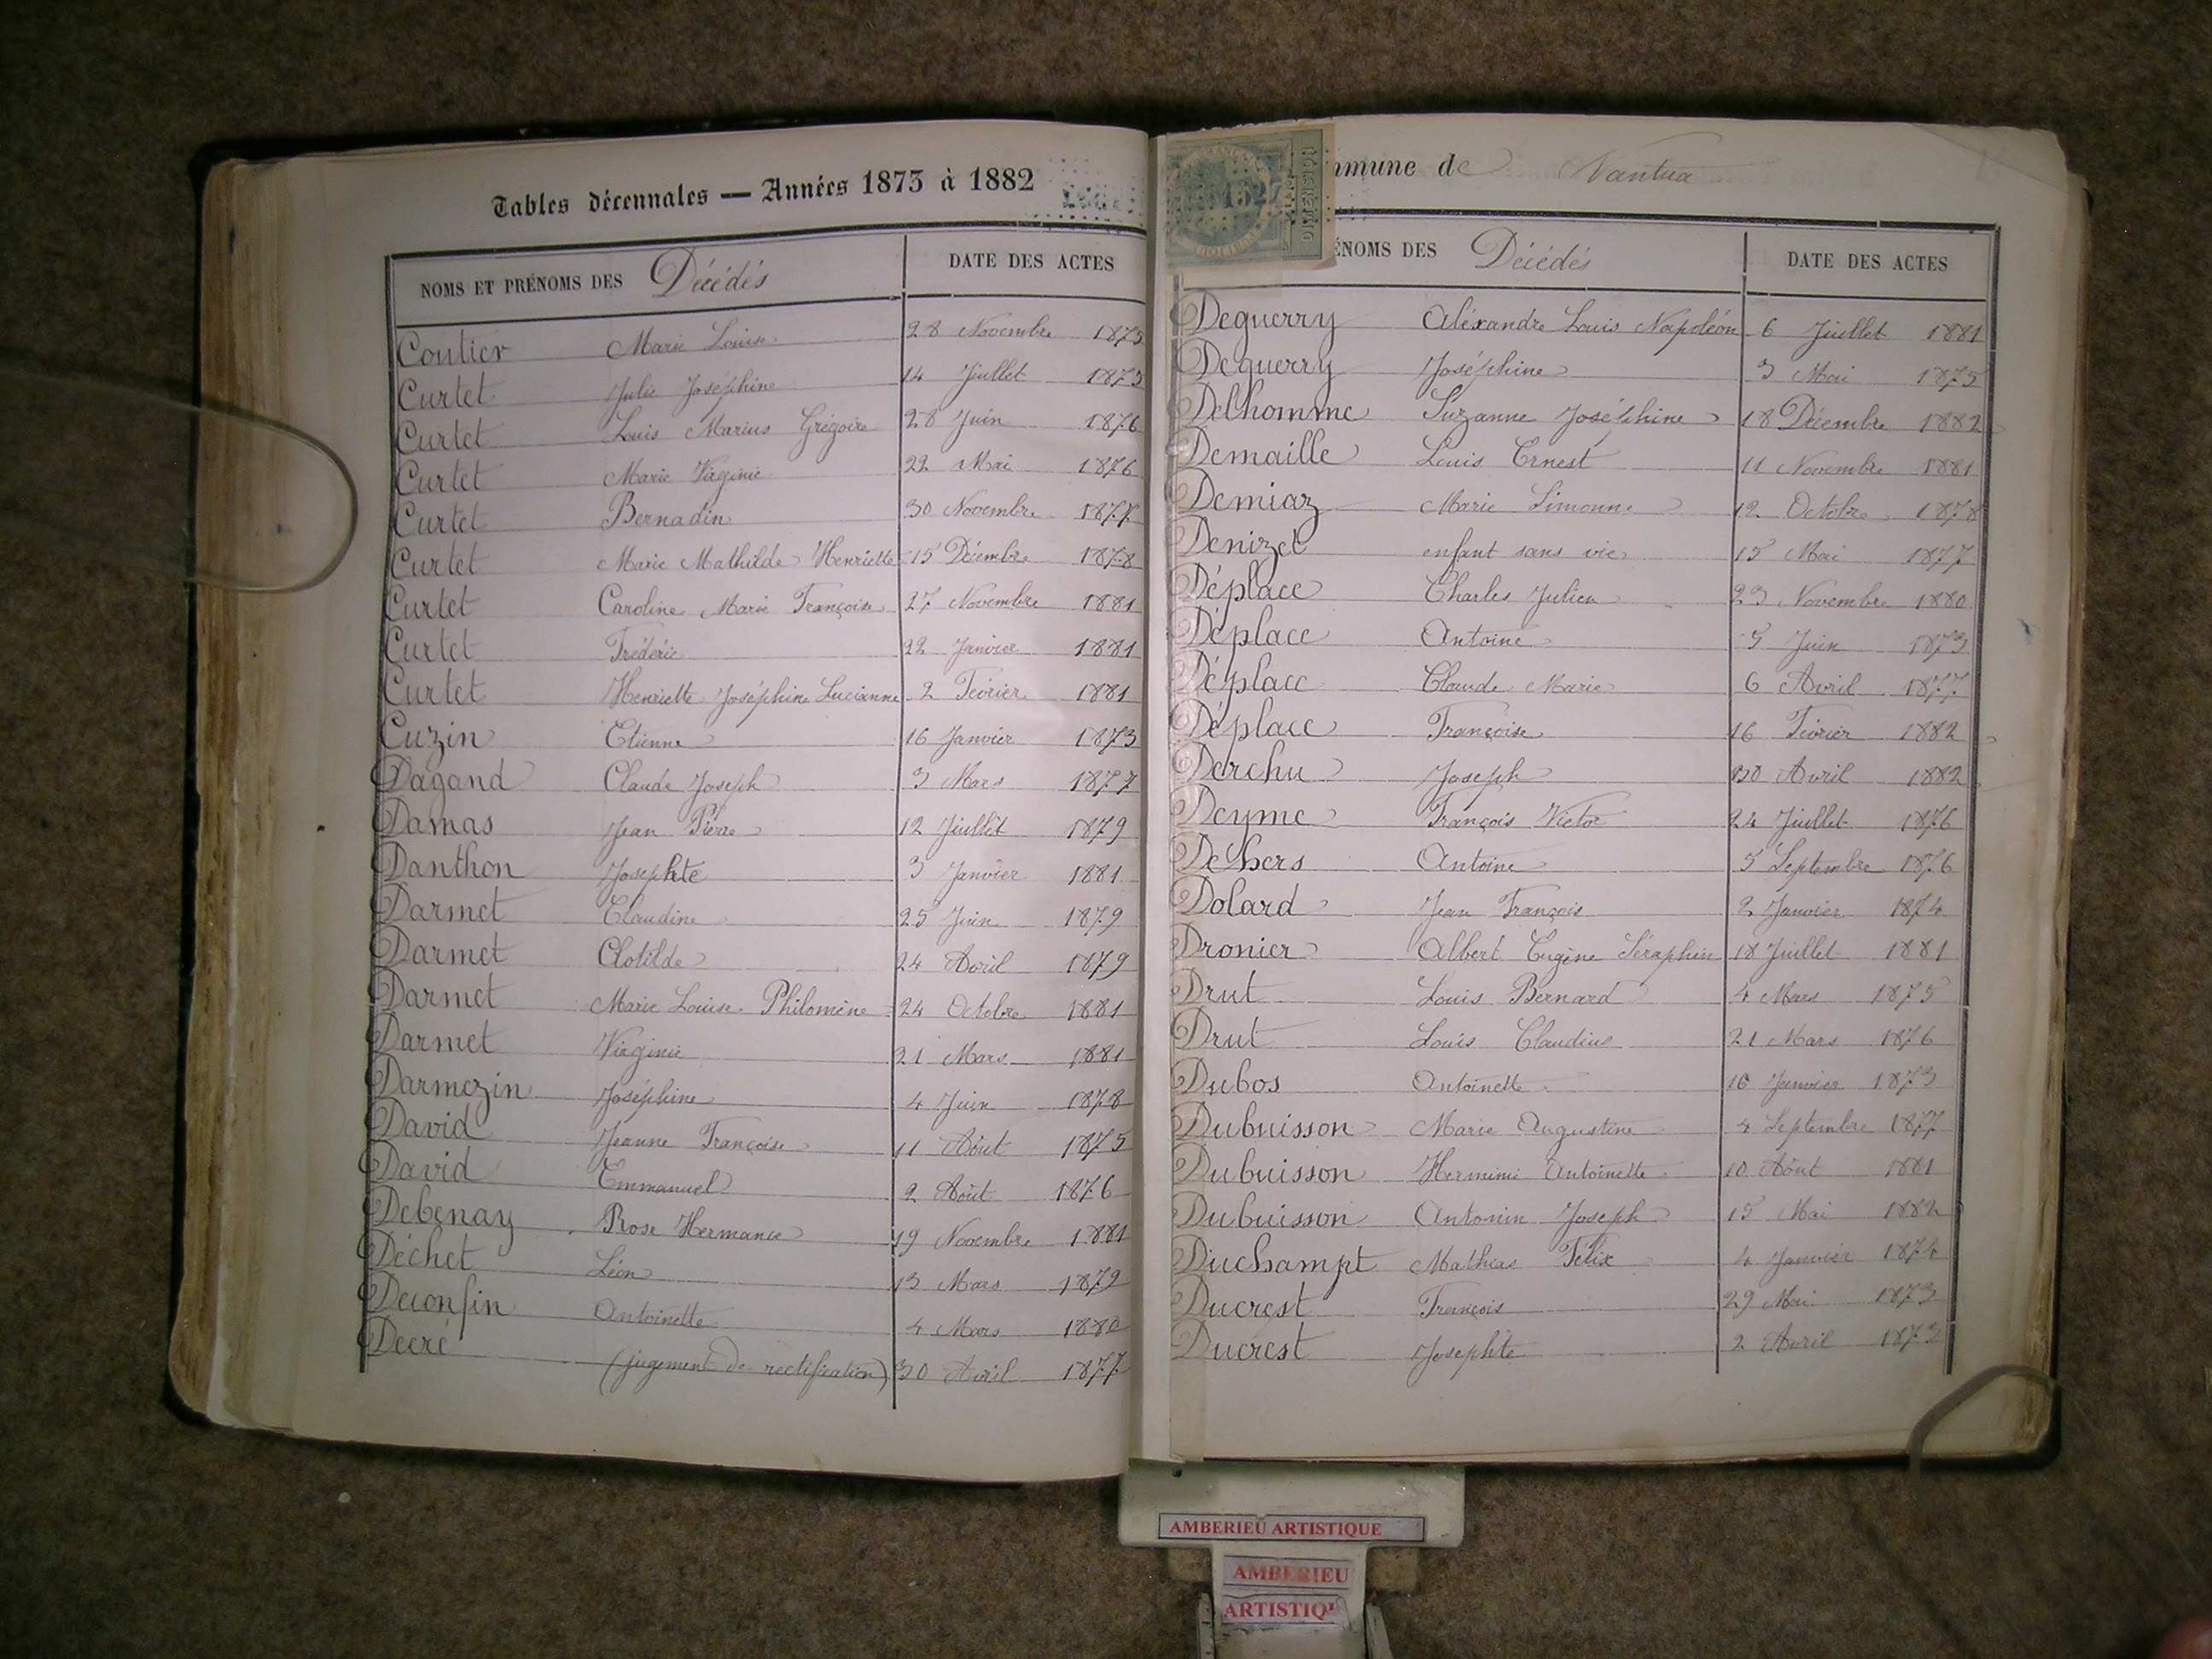 Tables décennales — Années 1873 à 1882
NOMS ET PRÉNOMS DES Décédés DATE DES ACTES
Coutier Marie Louise 28 Novembre 1875
Curtet Julie Joséphine 14 Juillet 1875
Curtet Louis Marius Grégoire 28 Juin 1876
Curtet Marie Virginie 22 Mai 1876
Curtet Bernadin 30 Novembre 1877
Curtet Marie Mathilde Henriette 15 Décembre 1878
Curtet Caroline Marie Françoise 27 Novembre 1881
Curtet Frédéric 22 Janvier 1881
Curtet Henriette Joséphine Lucianne 2 Février 1881
Cuzin Etienne 16 Janvier 1873
Dagand Claude Joseph 3 Mars 1877
Damas Jean Pierre 12 Juillet 1879
Danthon Josephte 3 Janvier 1881
Darmet Claudine 25 Juin 1879
Darmet Clotilde 24 Avril 1879
Darmet Marie Louise Philomène 24 Octobre 1881
Darmet Virginie 21 Mars 1881
Darmezin Joséphine 4 Juin 1878
David Jeanne Françoise 11 Août 1875
David Emmanuel 2 Août 1876
Debenay Rose Hermance 19 Novembre 1881
Déchet Léon 13 Mars 1879
Deconfin Antoinette 4 Mars 1880
Decré (jugement de rectification) 30 Avril 1877
mmune de Nantua
ÉNOMS DES Décédés DATE DES ACTES
Deguerry Aléxandre Louis Napoléon 6 Juillet 1881
Deguerry Joséphine 3 Mai 1875
Delhomme Suzanne Joséphine 18 Décembre 1882
Demaille Louis Ernest 11 Novembre 1881
Demiaz Marie Simonne 12 Octobre 1878
Denizet enfant sans vie 15 Mai 1877
Déplace Charles Julien 23 Novembre 1880
Déplace Antoine 5 Juin 1873
Déplace Claude Marie 6 Avril 1877
Déplace Françoise 16 Février 1882
Derchu Joseph 30 Avril 1882
Deyme François Victor 24 Juillet 1876
Antoine 5 Septembre 1876
Dolard Jean François 2 Janvier 1874
Dronier Albert Eugène Séraphin 18 Juillet 1881
Drut Louis Bernard 4 Mars 1875
Drut Louis Claudius 21 Mars 1876
Dubos Antoinette 16 Janvier 1873
Dubuisson Marie Augustine 4 Septembre 1877
Dubuisson Hermine Antoinette 10 Août 1881
Dubuisson Antonin Joseph 15 Mai 1882
Duchampt Mathias Félix 4 Janvier 1874
Ducrest François 29 Mai 1873
Ducrest Josephte 2 Avril 1873
AMBERIEU ARTISTIQUE
AMBERIEU
ARTISTIQU